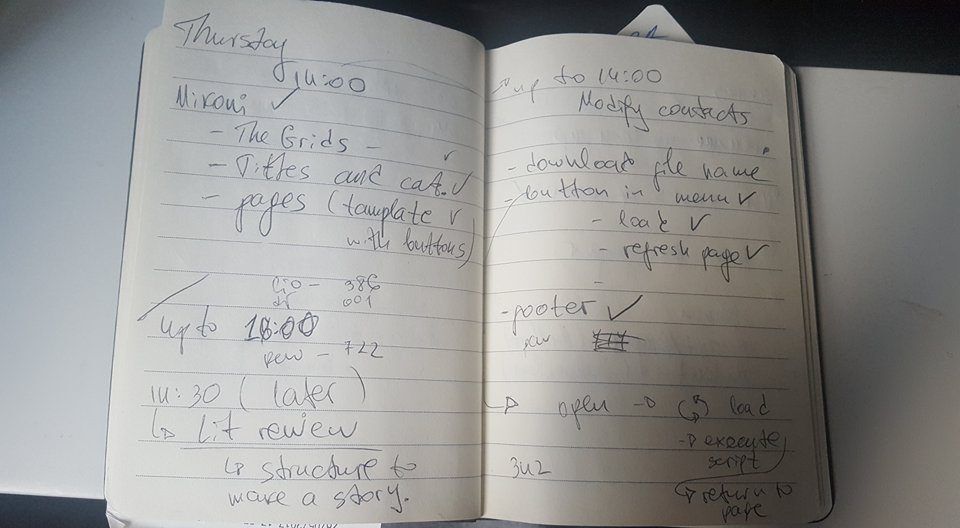 Thursday
14:00
Mikoni ✓
- The Grids -
- Titles and cat. ✓
- pages (tamplate ✓
with buttons)
- 386
001
up to 18:00
- 722
14:30 (later)
↳ Lit review
↳ structure to
make a story.
up to 14:00
Modify contacts
- download file name
- button in menu ✓
- load ✓
- refresh page ✓
- footer ✓
open → load
→ execute
script
→ return to
page
342